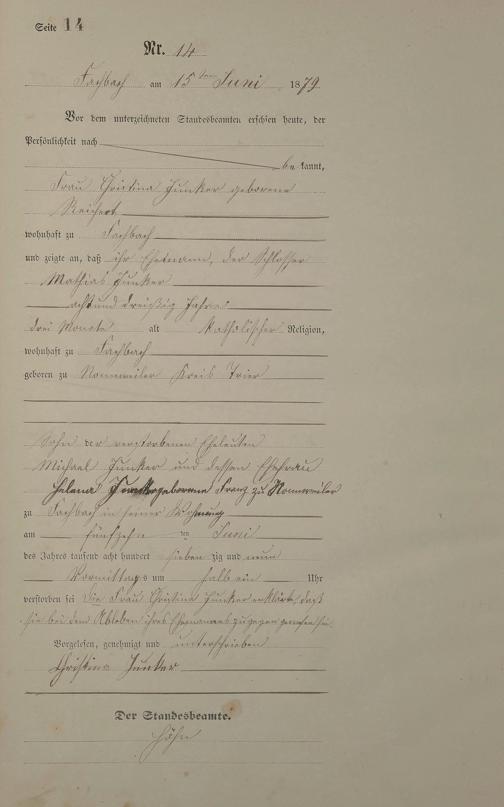 Seite 14
Nr. 14
Fachbach am 15ten Juni 1879.
Vor dem unterzeichneten Standesbeamten erschien heute, der
Persönlichkeit nach
be kannt,
Frau Christina Junker geborene
Reichert
wohnhaft zu Fachbach
und zeigte an, daß ihr Ehemann, der Schlosser
Mathias Junker
acht und dreißig Jahre
drei Monate alt katholischer Religion,
wohnhaft zu Fachbach
geboren zu Nonnweiler Kreis Trier
Sohn der verstorbenen Eheleuten
Michael Junker und dessen Ehefrau
Helena geborene Franz zu Nonnweiler
zu Fachbach in seiner Wohnung
am fünfzehn ten Juni
des Jahres tausend acht hundert sieben zig und neun
Vormittags um halb ein Uhr
verstorben sei Die Frau Christina Junker erklärte, daß
sie bei dem Ableben ihres Ehemannes zugegen gewesen sei.
Vorgelesen, genehmigt und unterschrieben
Christina Junker
Der Standesbeamte.
Höhn